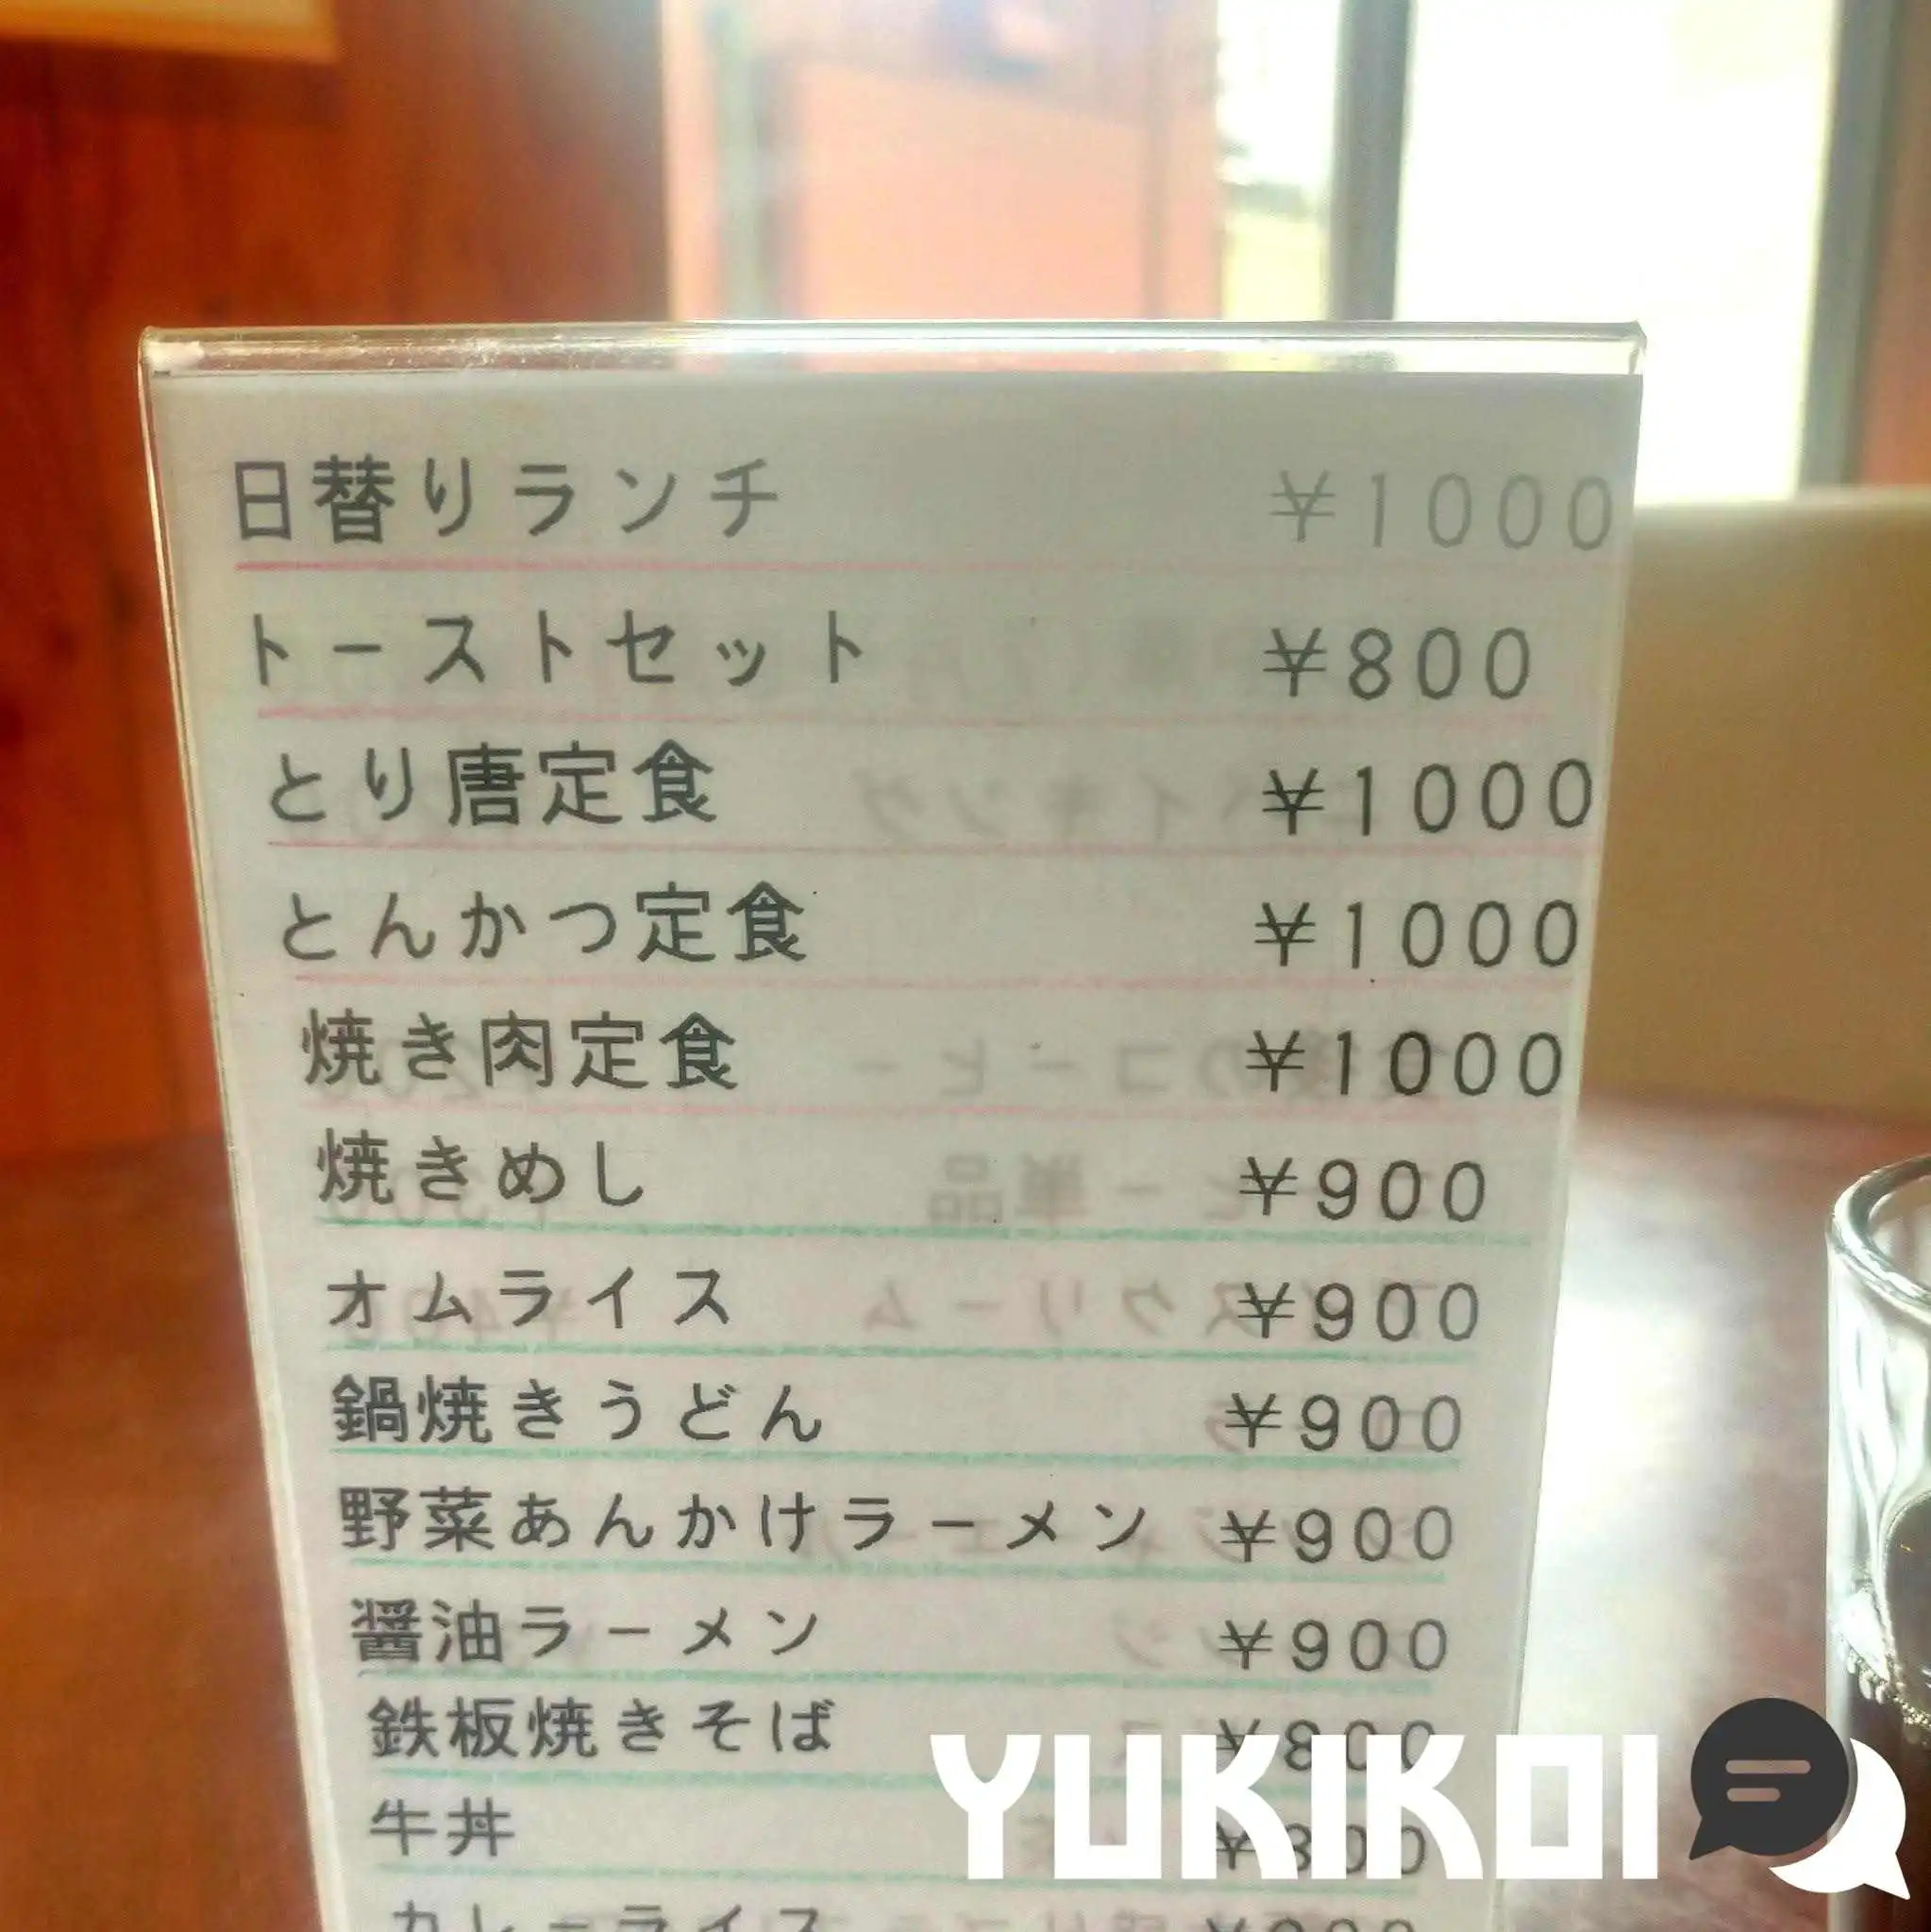 日替りランチ ¥1000
トーストセット ¥800
とり唐定食 ¥1000
とんかつ定食 ¥1000
焼き肉定食 ¥1000
焼きめし ¥900
オムライス ¥900
鍋焼きうどん ¥900
野菜あんかけラーメン ¥900
醤油ラーメン ¥900
鉄板焼きそば ¥800
牛丼 ¥800
カレーライス
YUKIKOI